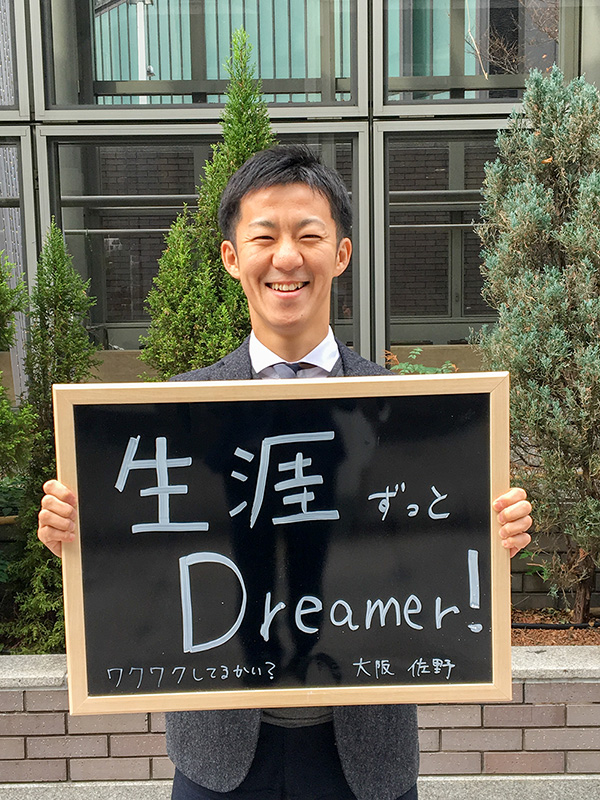 生涯 ずっと
Dreamer!
ワクワクしてるかい? 大阪 佐野